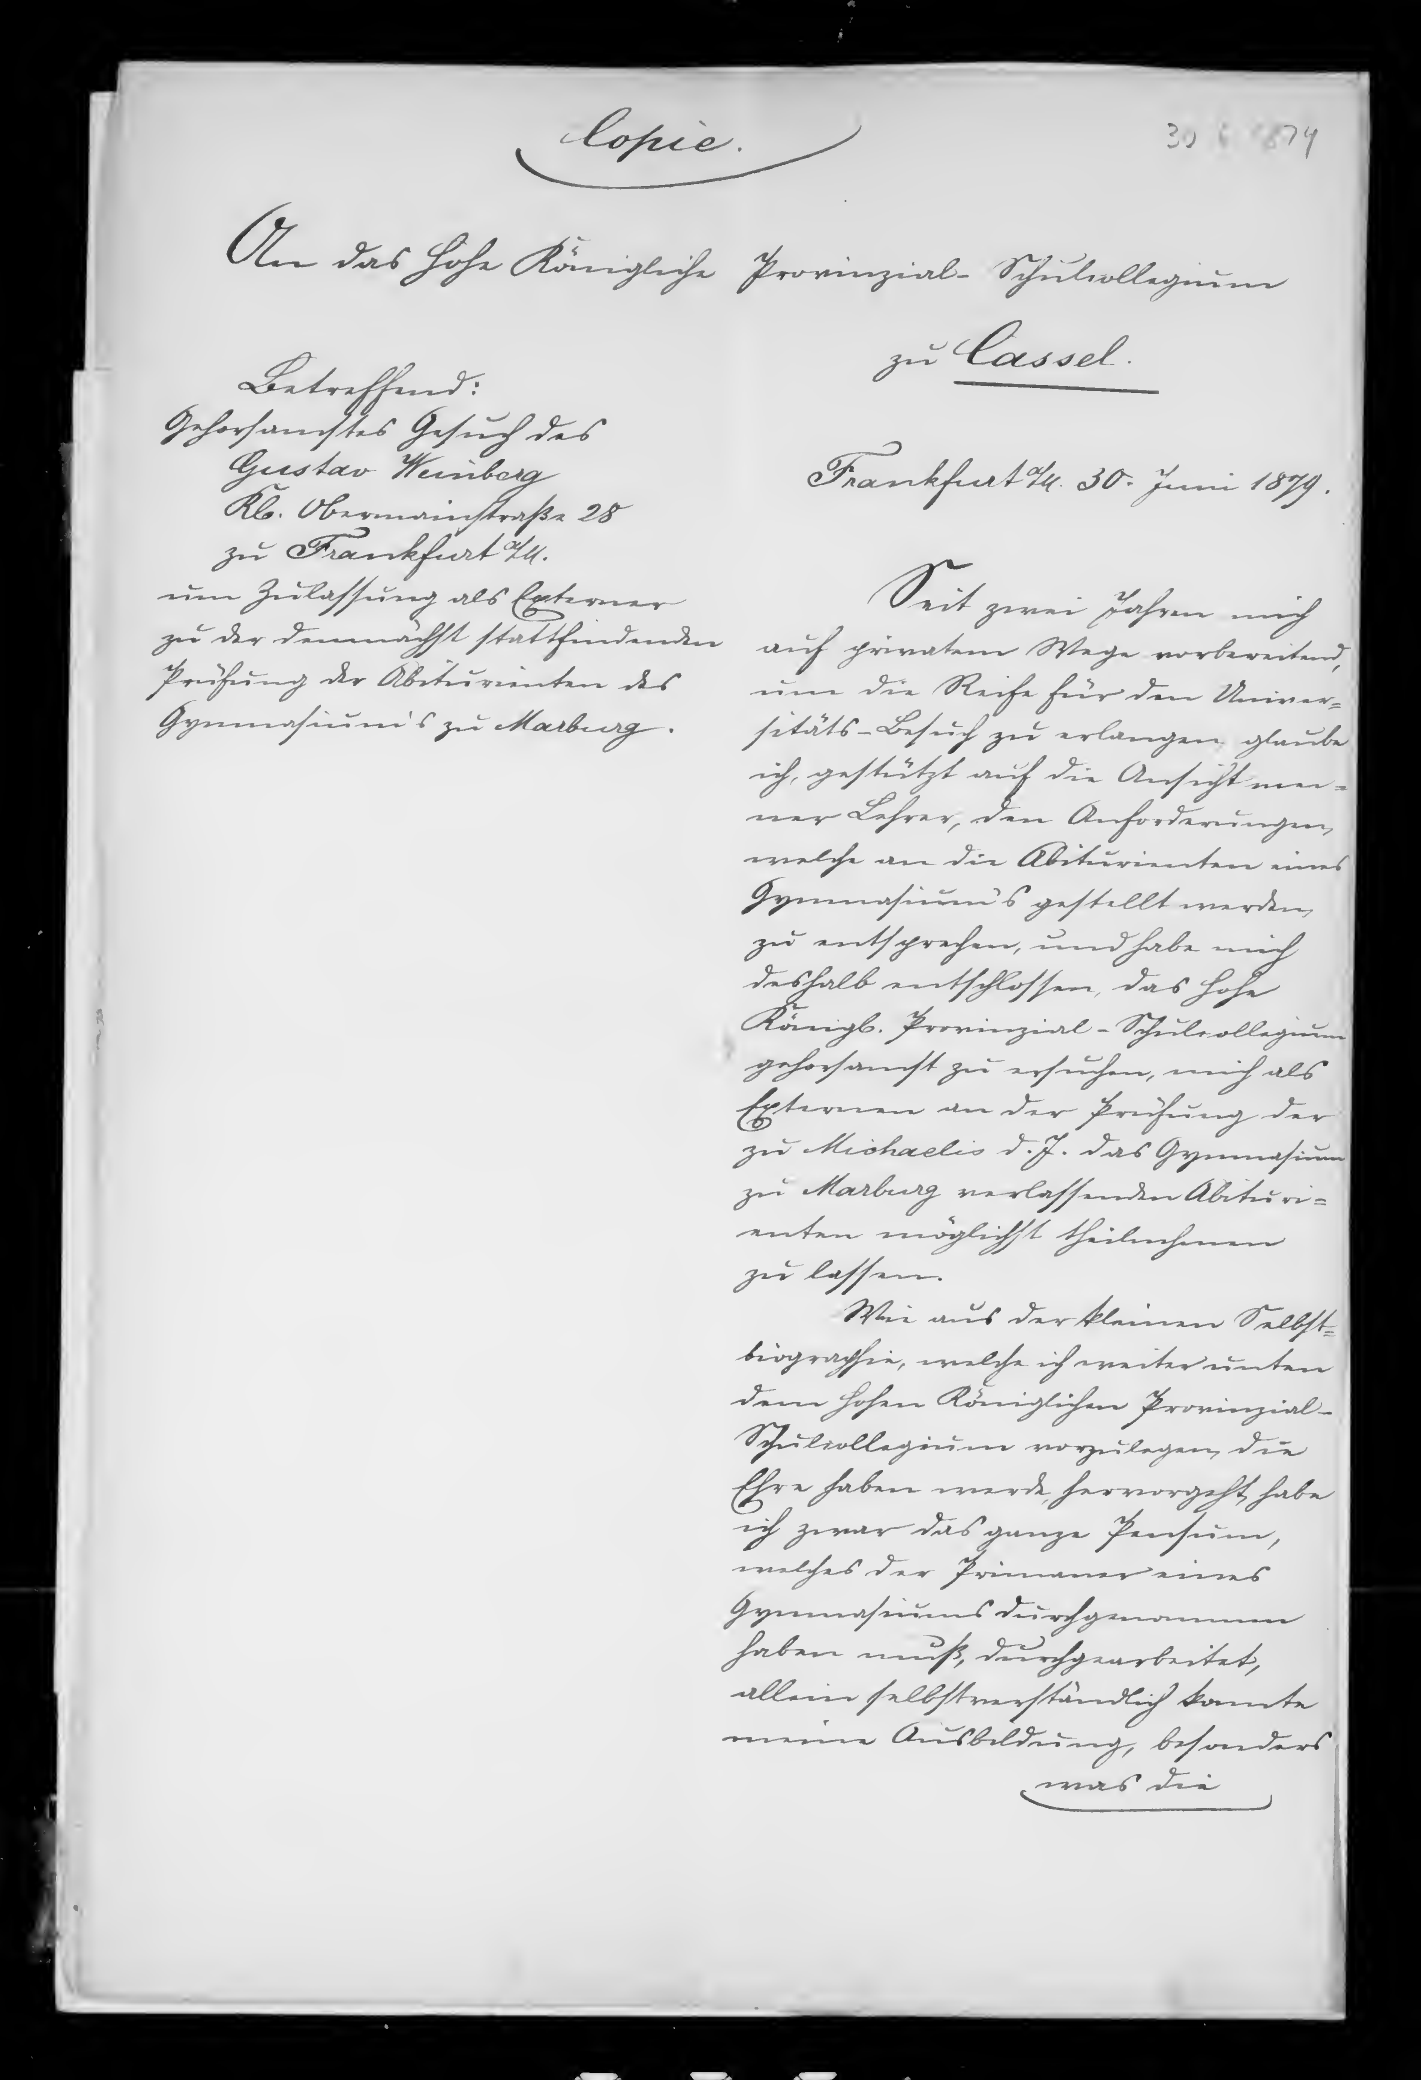 Copie.
30 6 1879
An das hohe Königliche Provinzial- Schulcollegium
zu Cassel.
Betreffend:
Gehorsamstes Gesuch des
Gustav Weinberg
Kl. Obermainstraße 28
zu Frankfurt a/M.
um Zulassung als Externer
zu der demnächst stattfindenden
Prüfung der Abiturienten des
Gymnasium's zu Marburg.
Frankfurt a/M. 30. Juni 1879.
Seit zwei Jahren mich
auf privatem Wege vorbereitend,
um die Reife für den Univer=
sitäts-Besuch zu erlangen, glaube
ich, gestützt auf die Ansicht mei=
ner Lehrer, den Anforderungen,
welche an die Abiturienten eines
Gymnasium's gestellt werden,
zu entsprechen, und habe mich
deshalb entschlossen, das hohe
Königl. Provinzial-Schulcollegium
gehorsamst zu ersuchen, mich als
Externen an der Prüfung der
zu Michaelis d. J. das Gymnasium
zu Marburg verlassenden Abituri=
enten möglichst theilnehmen
zu lassen.
Wie aus der kleinen Selbst=
biographie, welche ich weiter unten
dem hohen Königlichen Provinzial-
Schulcollegium vorzulegen, die
Ehre haben werde, hervorgeht, habe
ich zwar das ganze Pensum,
welches der Primaner eines
Gymnasiums durchgenommen
haben muß, durchgearbeitet,
allein selbstverständlich konnte
meine Ausbildung, besonders
was die